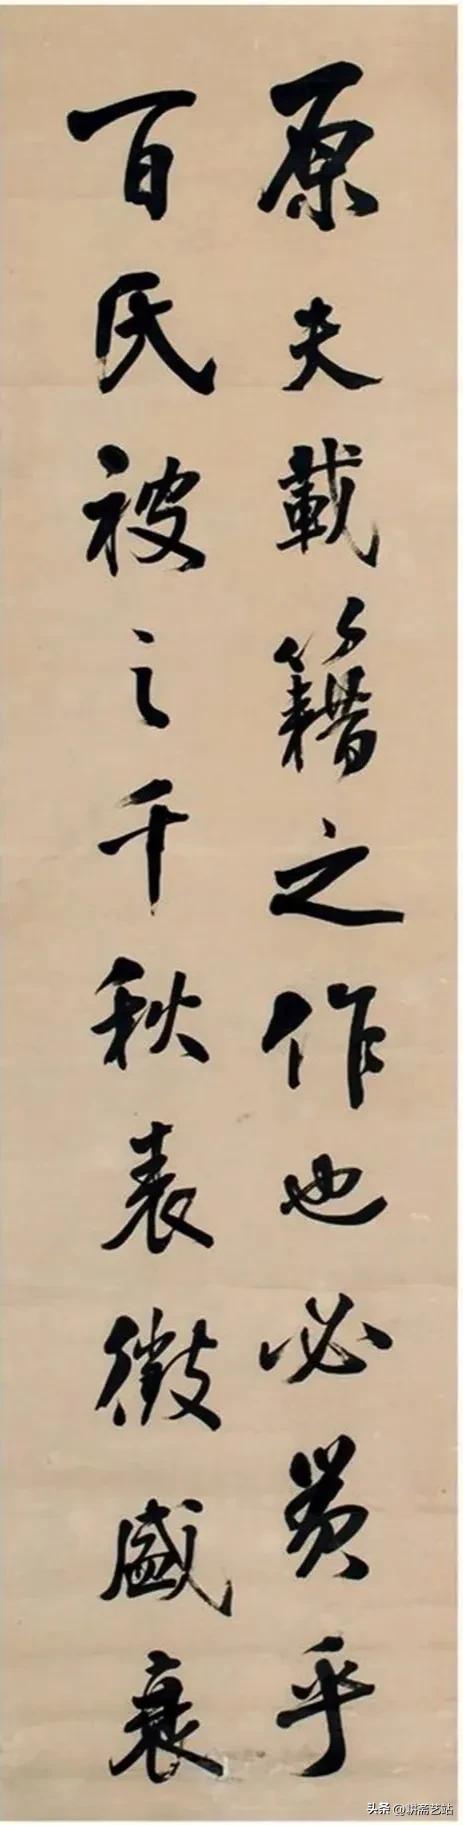 原夫載籍之作也必貫乎
百氏被之千秋表徵盛衰
头条 @耕斋艺站